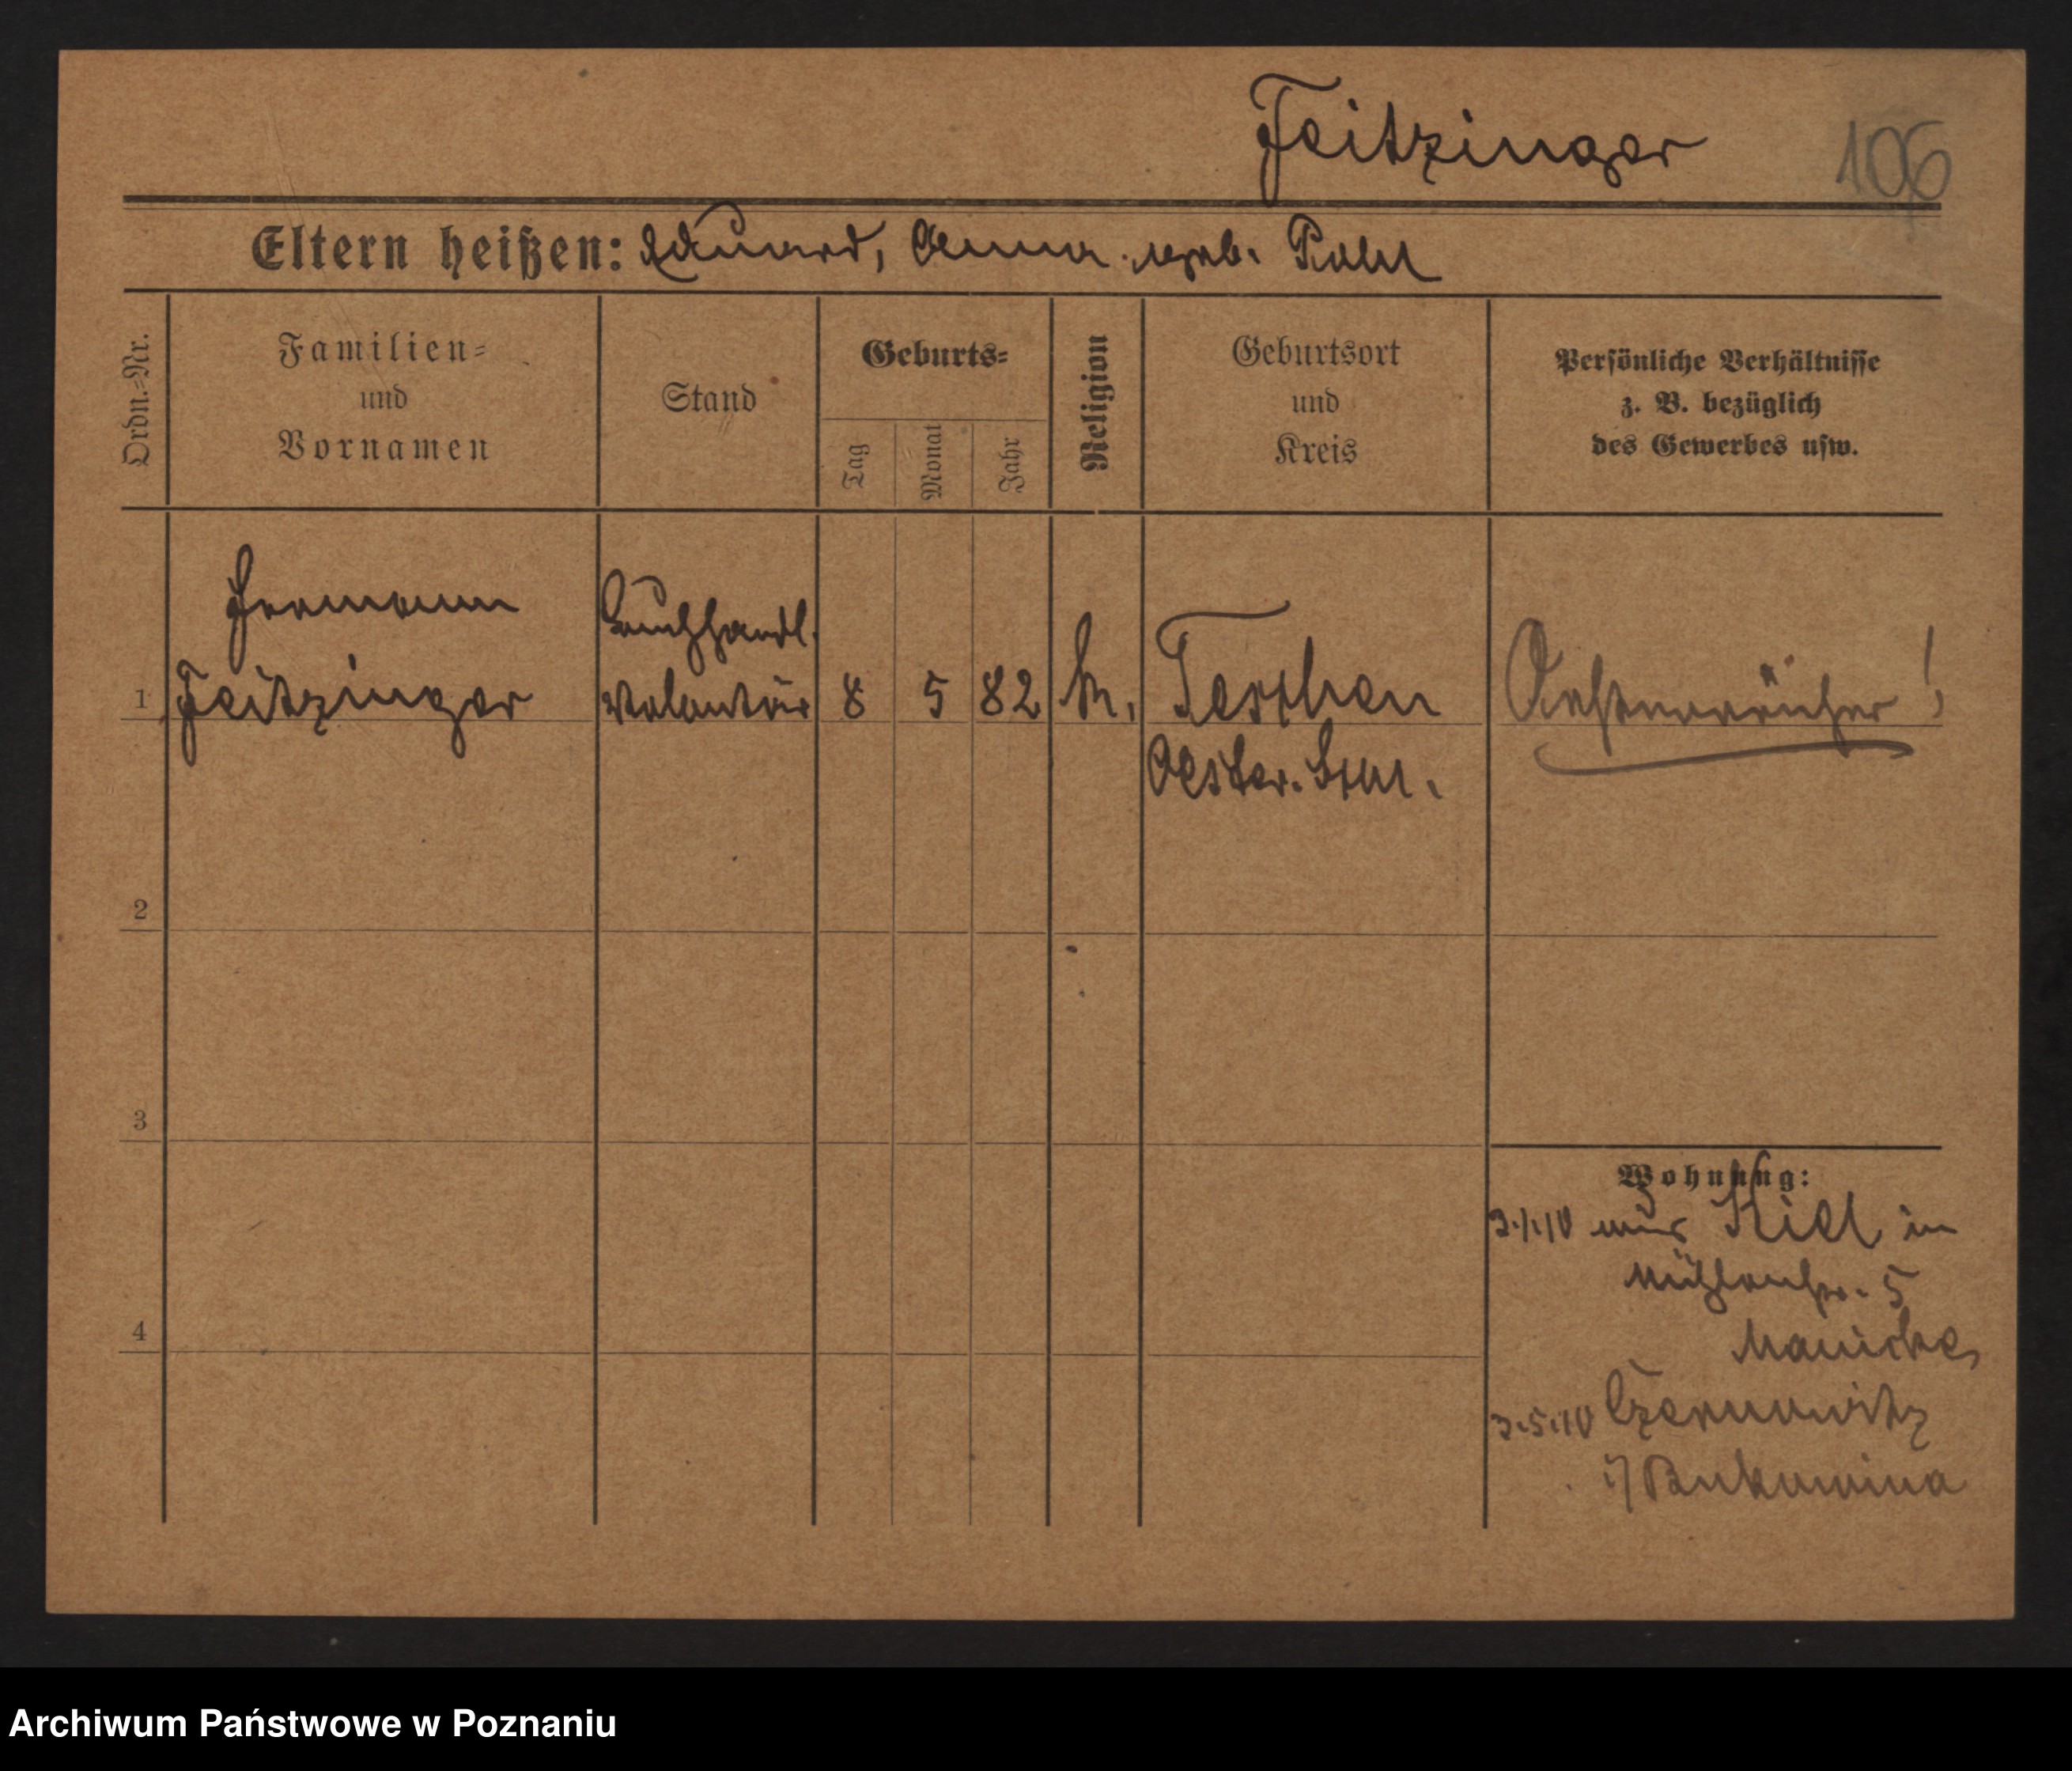 Feitzinger
106
Eltern heißen: Eduard, Anna geb. Pohl
Ordn.-Nr.
Familien-
und
Vornamen
Stand
Geburts-
Tag
Monat
Jahr
Religion
Geburtsort
und
Kreis
Persönliche Verhältnisse
z. B. bezüglich
des Gewerbes usw.
Hermann
Feitzinger
Buchhandl.
Volontär
1
8
5
82
Teschen
Oester. Schl.
Oesterreicher!
2
3
4
Wohnung:
3.1.10 aus Kiel in
Mühlenstr. 5
3.5.10 Czernowitz
i/ Bukowina
Archiwum Państwowe w Poznaniu